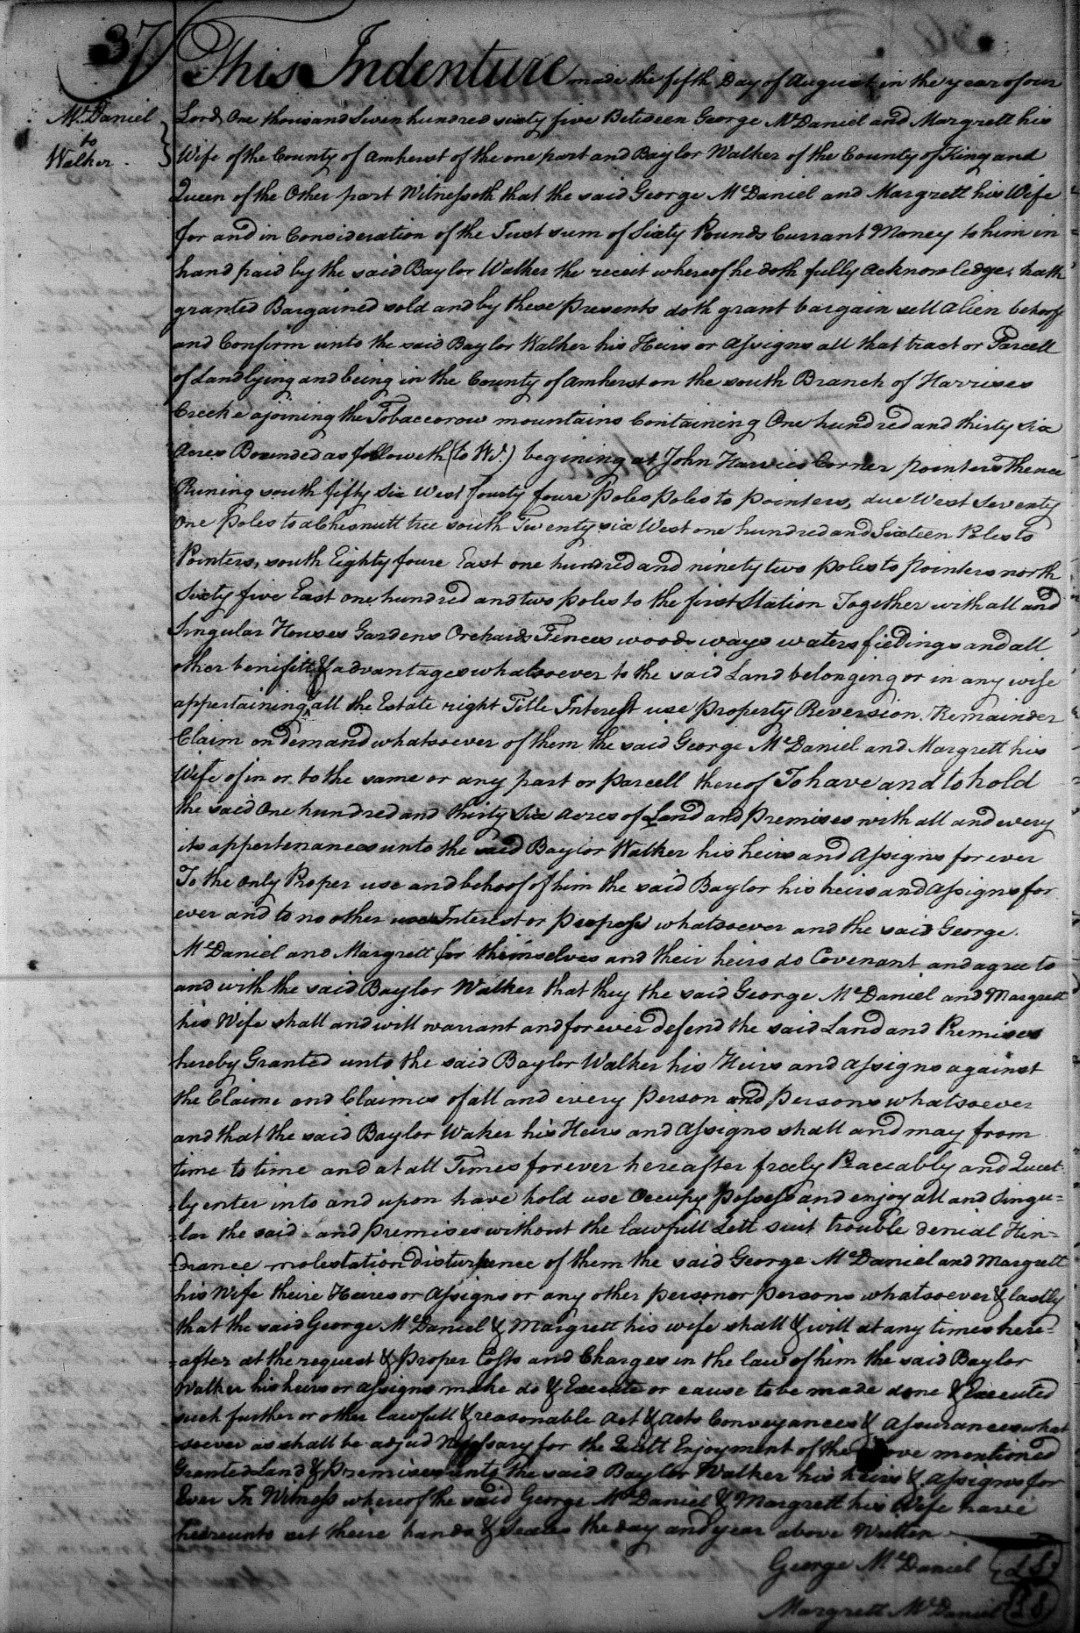 37
McDaniel
to
Walker.
This Indenture made the fifth Day of August in the year of our
Lord One thousand Seven hundred sixty five Between George McDaniel and Margrett his
Wife of the County of Amherst of the one part and Baylor Walker of the County of King and
Queen of the Other part Witnesseth that the said George McDaniel and Margrett his Wife
for and in Consideration of the Just sum of Sixty Pounds Currant Money to him in
hand paid by the said Baylor Walker the receit whereof he doth fully acknowledge, hath
granted Bargained sold and by these presents doth grant bargain sell Alien behoofe
and Confirm unto the said Baylor Walker his Heirs or assigns all that tract or Parcell
of Land lying and being in the County of Amherst on the south Branch of Harrises
Creek ajoining the Tobaccorow mountains Containing One hundred and thirty six
Acres Bounded as followeth (to Wt.) begining at John Harvies Corner pointers Thence
Runing south fifty six West fourty foure Poles poles to pointers, due West Seventy
One poles to a Chesnutt tree south Twenty six West one hundred and Sixteen Poles to
Pointers, south Eighty foure East one hundred and ninety two poles to pointers north
Sixty five East one hundred and two poles to the first Station Together with all and
Singular Houses Gardens Orchards Fences woods ways waters fieldings and all
other benifitt & advantages whatsoever to the said Land belonging or in any wise
appertaining, all the Estate right Title Interest use Property Reversion. Remainder
Claim on Demand whatsoever of them the said George McDaniel and Margrett his
Wife of in or to the same or any part or parcell thereof To have and to hold
the said One hundred and thirty Six acres of Land and Premises with all and every
its appertenances unto the said Baylor Walker his heirs and Assigns for ever
To the only Proper use and behoof of him the said Baylor his heirs and Assigns for
ever and to no other use Interest or purpose whatsoever and the said George.
McDaniel and Margrett for themselves and their heirs do Covenant and agree to
and with the said Baylor Walker that they the said George McDaniel and Margrett
his Wife shall and will warrant and forever defend the said Land and Premises
hereby Granted unto the said Baylor Walker his Heirs and assigns against
the Claime and Claimes of all and every Person and persons whatsoever
and that the said Baylor Waker his Heirs and Assigns shall and may from
time to time and at all Times forever hereafter freely Peaceably and Quiet-
-ly enter into and upon have hold use Occupy possess and enjoy all and Singu=
-lar the said and premises without the lawfull Lett suit trouble denial Hin=
-drance molestation disturbance of them the said George McDaniel and Margrett
his Wife theire Heires or Assigns or any other person or persons whatsoever & lastly
that the said George McDaniel & Margrett his wife shall & will at any times here=
-after at the request & proper Costs and Charges in the law of him the said Baylor
Walker his heirs or assigns make do & Execute or cause to be made done & Executed
such further or other lawfull & reasonable act & acts Conveyances & assurances what
-soever as shall be adjud Nessary for the Quiett Enjoyment of the above mentioned
Granted Land & Premises unto the said Baylor Walker his heirs & Assigns for
Ever In Witness whereof the said George McDaniel & Margrett his Wife have
hereunto set theire hands & Seales the day and year above Written
George McDaniel L S
Margrett McDaniel L S